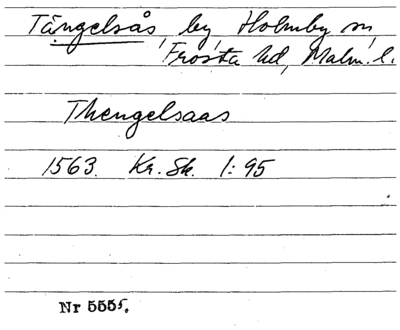 Tängelsås, by, Holmby sn,
Frosta hd, Malm. l.
Thengelsaas
1563. Kr. Sk. 1:95
Nr 5555.